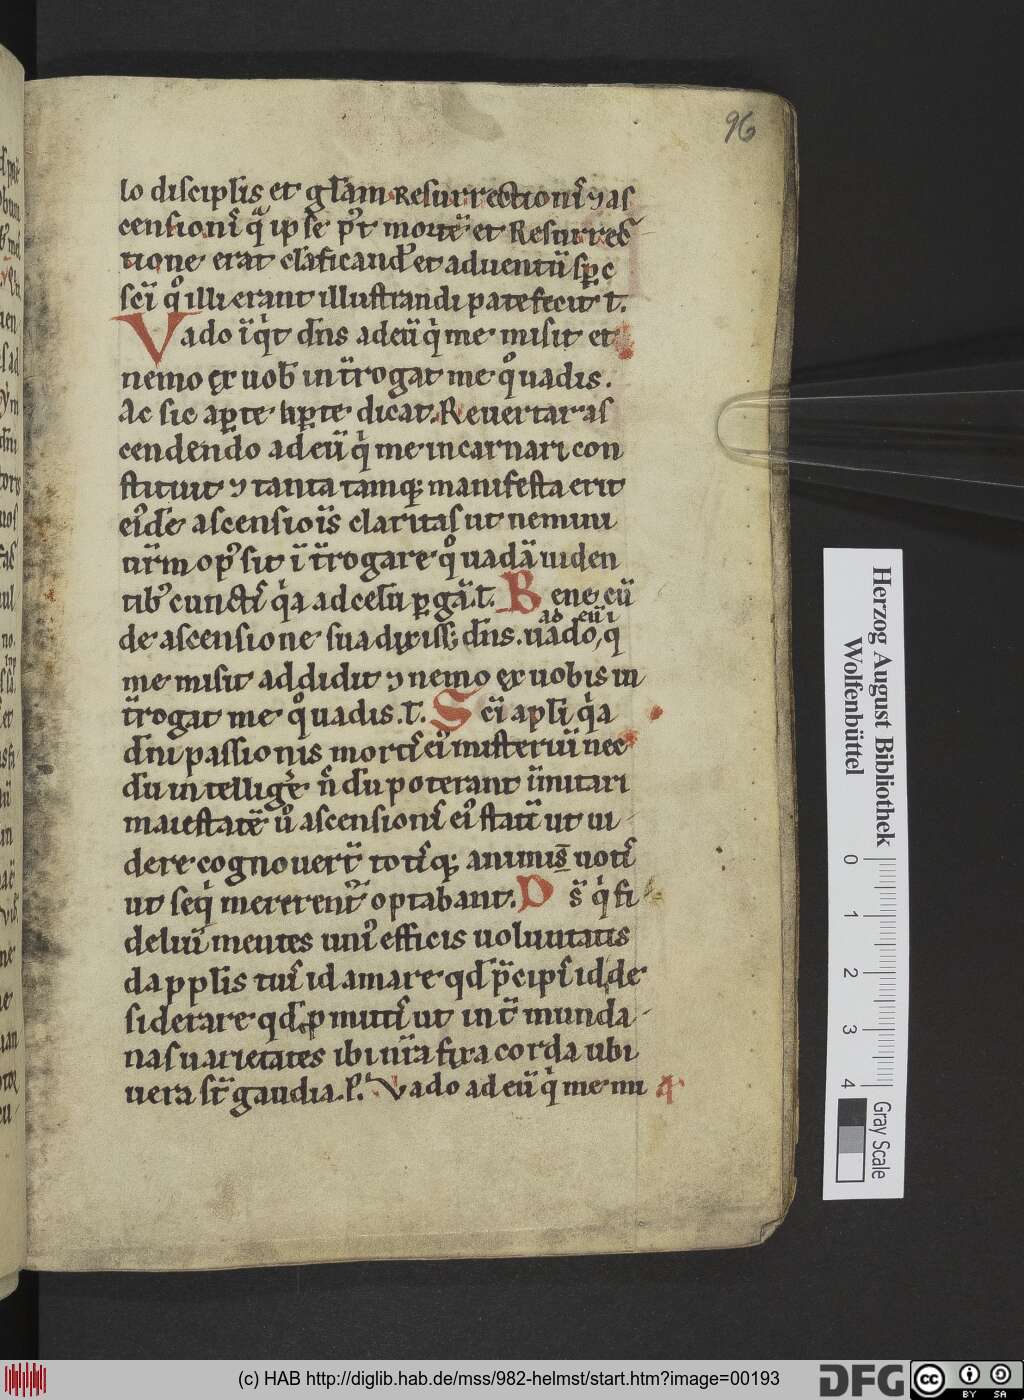 96
lo disciplis et gl̄am Resurrectionis̄ ⁊ as
censioniš q̄ ipse p̄t morte et Resurrec
tione erat claficand᾿ et adventū sp̄c
sc̄i qͦ illi erant illustrandi patefecit t̄.
Vado īqͥt dn̄s ad eū qͥ me misit et
nemo ex uob̄ int̄rogat me qͦ uadis.
Ac sic ap̲te dicat. Revertar as
cendendo ad eū qͥ me incarnari con
stituit ⁊ tanta tamq; manifesta erit
ei᾿dē ascensiōis claritas ut nemini
ur̄m op᾿ sit īt̄rogare qͦ uadā uiden
tib᾿ cunctis̄ qͥa ad celū p̲gā. t̄. Bene eū
de ascensione sua dixiss; dn̄s. uado, qͥ
ad eū
me misit addidit ⁊ nemo ex uobis in
t̄rogat me qͦ uadis. t̄. Sc̄i apl̄i qͥa
dn̄i passionis mortis̄ ei᾿ misteriū nec
dū intellige᾿ n̄dū poterant īmitari
maiestatē ū᾿ ascensionis̄ ei᾿ statī ut ui
dere cognouer̄t totis̄q; animis uotis̄
ut seqͥ mererent᾿ optabant. Ds̄ qͥ fi
deliū mentes uni᾿ efficis uoluntatis
da pplīs tuis̄ id amare qd̄ p̄cipis̄ id de
siderare qd̄ p̲mittis̄ ut int̄ munda
nas uarietates ibi nr̄a fixa corda ubi
uera st̄ gaudia. P. Vado ad eū qͥ me mi
Herzog August Bibliothek
Wolfenbüttel
0 1 2 3 4
Gray Scale
(c) HAB http://diglib.hab.de/mss/982-helmst/start.htm?image=00193
DFG
cc
BY SA